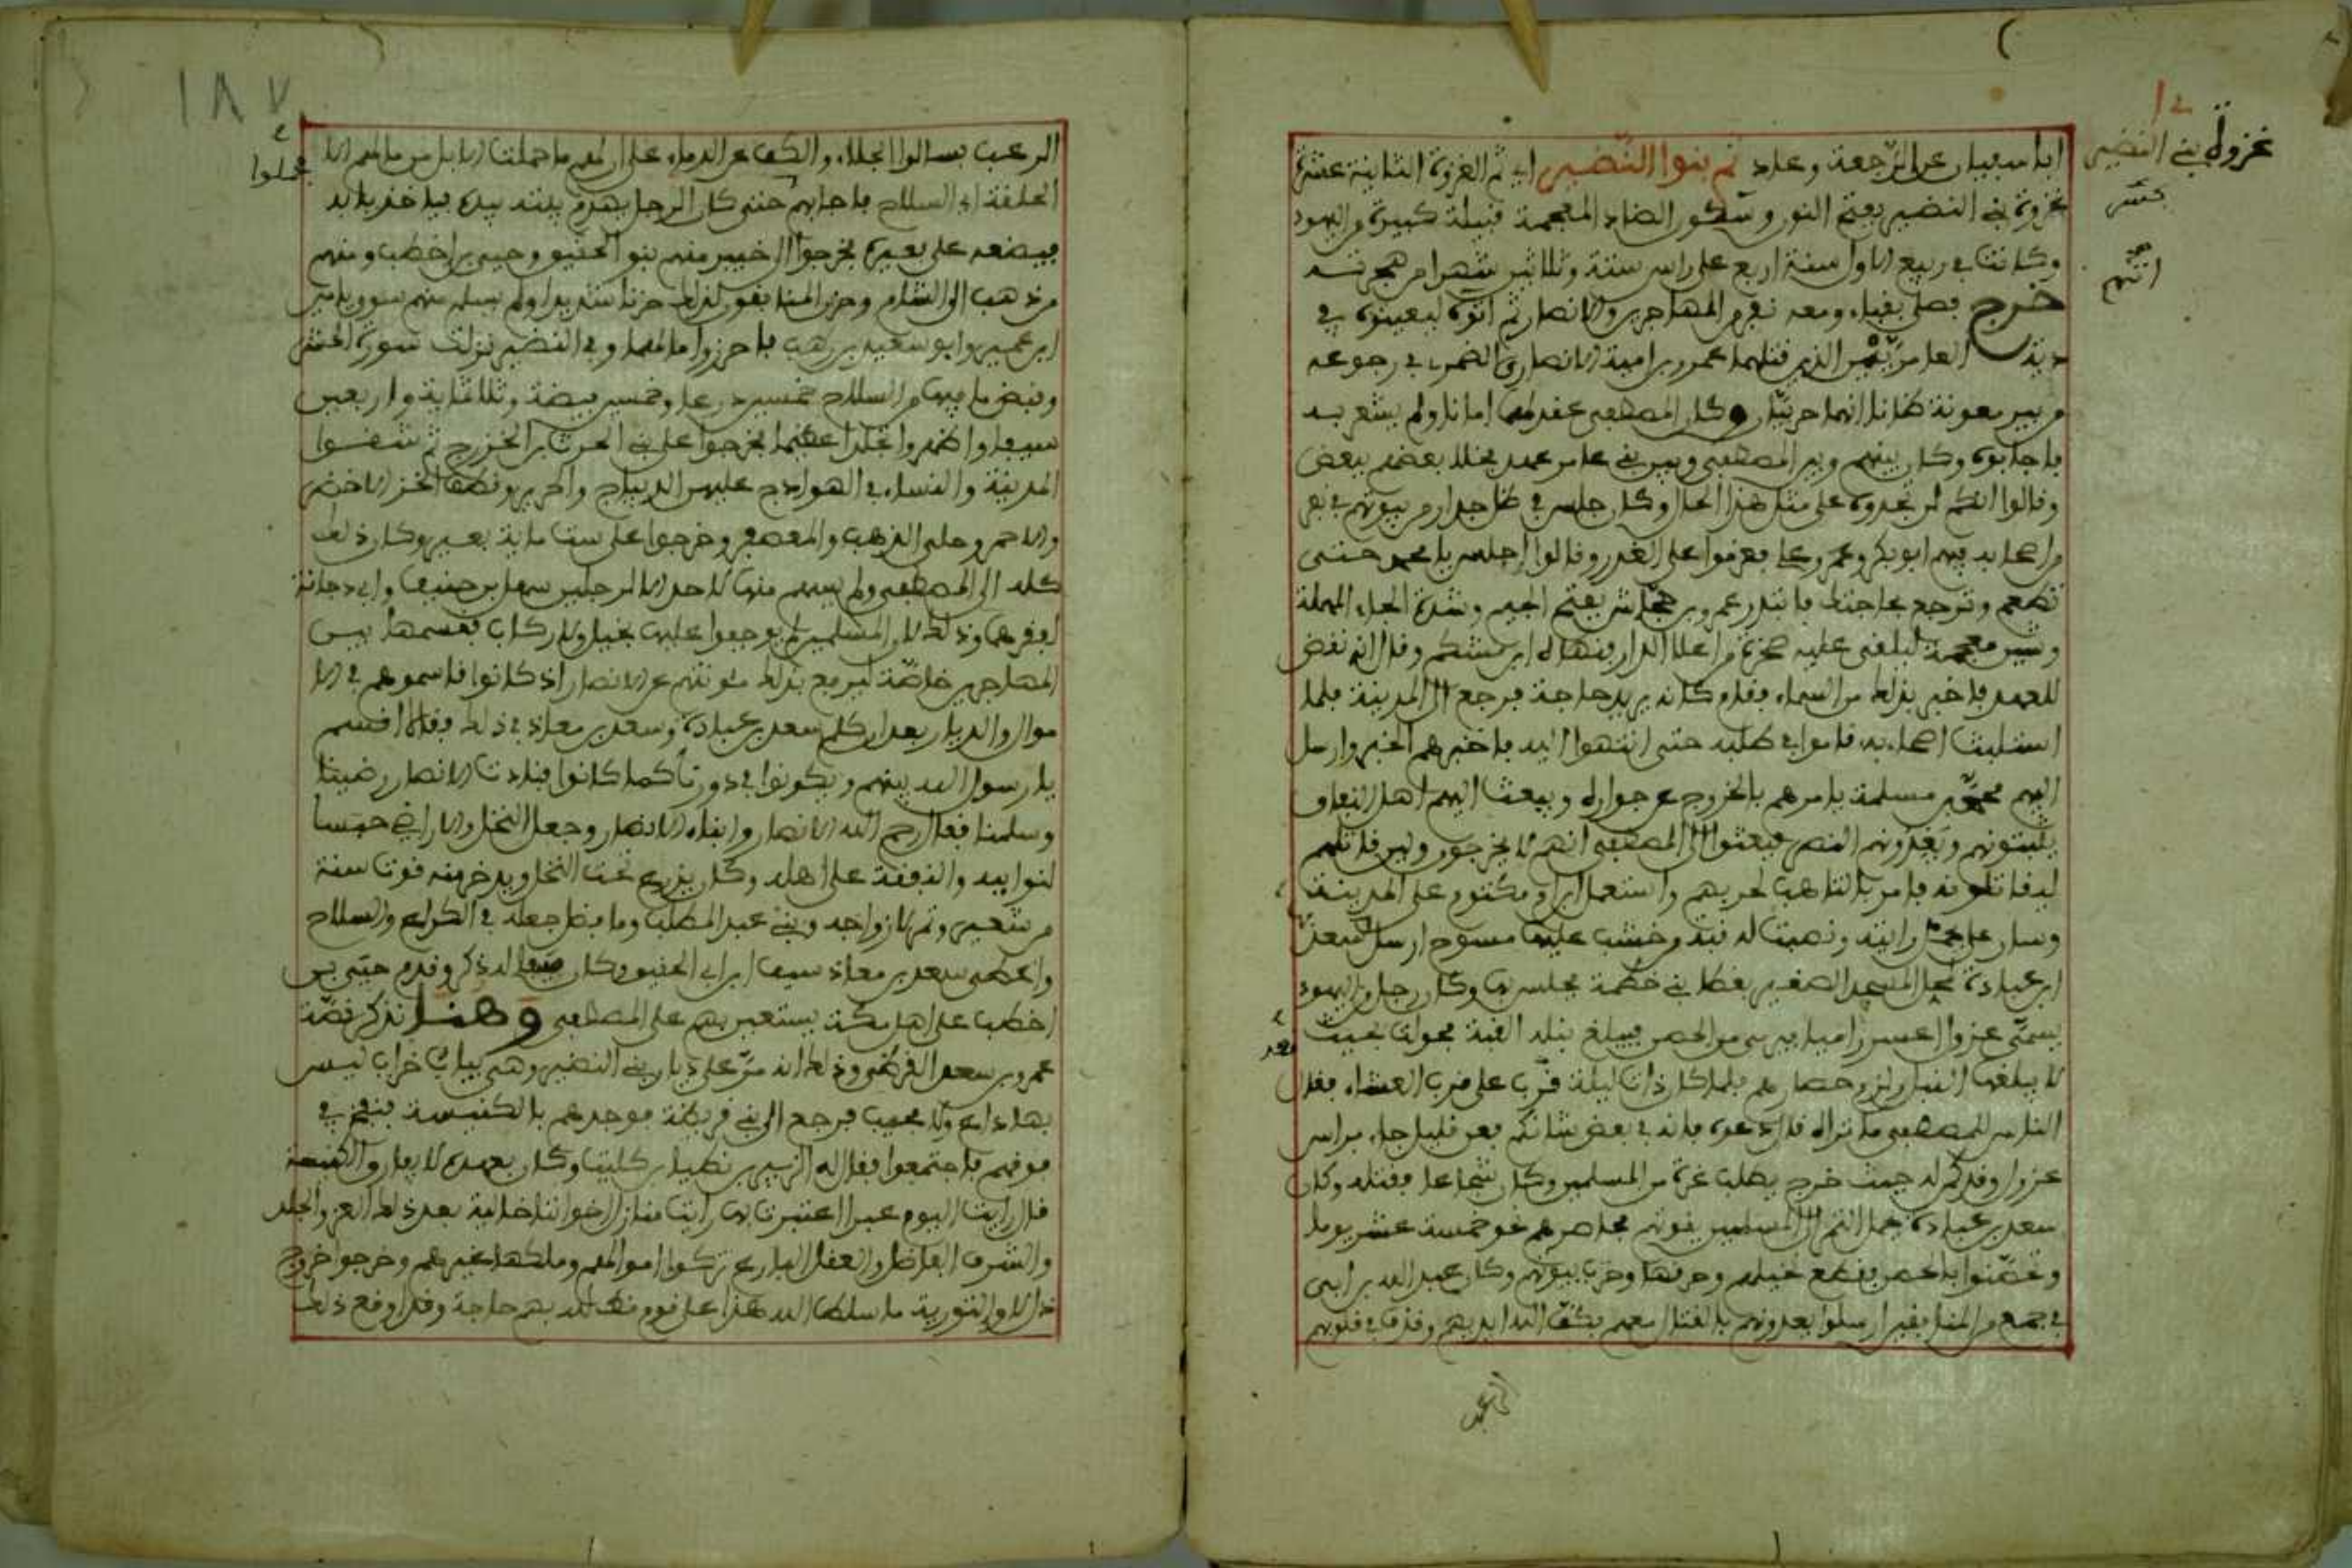 غزوة بني النضير
ابا سفيان عن الرجعة وعاد ثم بنوا النضير اي ثم الغزوة الثانية عشرة
غزوة بني النضير بفتح النون وسكون الضاد المعجمة قبيلة كبيرة من اليهود
وكانت في ربيع الاول سنة اربع على راس ستة وثلاثين شهرا من هجرته
خرج فصلى بقباء ومعه نفر من المهاجرين والانصار ثم اتوه ليعينوه في
دية العامريين الذين قتلهما عمرو بن امية الانصاري الضمري في رجوعه
من بير معونة ظانا انهما حربيان وكان المصطفى عقد لهما امانا ولم يشعر به
فاجابوه وكان بينهم وبين المصطفى وبين بني عامر عهد فخلا بعضهم ببعض
وقالوا انكم لن تجدوه على مثل هذا الحال وكان جلس في ظل جدار من بيوتهم في نفر
من اصحابه فيهم ابو بكر وعمر وعلي فعزموا على الغدر وقالوا اجلس يا محمد حتى
تطعم وترجع بحاجتك فابتدر عمرو بن جحاش بفتح الجيم وشدة الحاء المهملة
وشين معجمة ليلقي عليه صخرة من اعلا الدار فنهاه ابن مشكم وقال انه نقض
للعهد فاخبر بذلك من السماء فقام وكانه يريد حاجة فرجع الى المدينة فلما
استلبث اصحابه قاموا في طلبه حتى انتهوا اليه فاخبرهم الخبر وارسل
اليهم محمد بن مسلمة يامرهم بالخروج من جواره وبعث اليهم اهل النفاق
يثبتونهم ويعدونهم النصر فبعثوا الى المصطفى انهم لا يخرجون ولين قاتلهم
ليقاتلونه فامر بالتاهب لحربهم واستعمل ابن ام مكتوم على المدينة
وسار علي رايته ونصبت له قبة من خشب عليها مسوح ارسل سعد
ابن عبادة محل المسجد الصغير بفضا بني خطمة فجلس بها وكان رجل من اليهود
يسمى عزوا اعسر راميا يرمي من الحصن فيبلغ نبله القبة فحولت بحيث
لا يبلغها النبل ولزم حصارهم فلما كان ذات ليلة فقد علي قرب العشاء فقال
الناس للمصطفى ما نراه قال دعوه فانه في بعض شانكم فعن قليل جاء براس
عزوا وقد كمن له حيث خرج يطلب غرة من المسلمين وكان شجاعا فقتله وكان
سعد بن عبادة يحمل التمر الى المسلمين يقوتهم فحاصرهم نحو خمسة عشر يوما
وتحصنوا بالحصن فقطع نخيلهم وحرقها وخرب بيوتهم وكان عبد الله بن ابي
في جمع من المنافقين ارسلوا يعدونهم بالقتال معهم فكف الله ايديهم وقذف في قلوبهم
الرعب
١٨٧
الرعب فسالوا الجلاء والكف عن الدماء على ان لهم ما حملت الابل من مالهم الا
الحلقة اي السلاح فاجابهم حتى كان الرجل يهدم بيته بيده فياخذ بابه
فيضعه على بعيره فخرجوا الى خيبر منهم بنو الحقيق وحيي بن اخطب ومنهم
من ذهب الى الشام وحزن المنافقون لذلك حزنا شديدا ولم يسلم منهم سوى يامين
ابن عمير وابو سعيد بن وهب فاحرزوا مالهما وفي النضير نزلت سورة الحشر
وقبض ما فيها من السلاح خمسين درعا وخمسين بيضة وثلاثماية واربعين
سيفا واظهروا تجلدا عظيما فخرجوا على بني الحرث بن الخزرج ثم شقوا
المدينة والنساء في الهوادج عليهن الديباج والحرير وقطف الخز الاخضر
والاحمر وحلي الذهب والمعصفر وخرجوا على ست ماية بعير وكان ذلك
كله الى المصطفى ولم يسهم منها لاحد الا لرجلين سهل بن حنيف وابي دجانة
لفقرهما وذلك لان المسلمين لم يوجفوا عليها بخيل ولا ركاب فقسمها بين
المهاجرين خاصة ليرفع بذلك مئونتهم عن الانصار اذ كانوا قاسموهم في الا
موال والديار بعد ان كلم سعد بن عبادة وسعد بن معاذ في ذلك فقالا اقسم
يا رسول الله بينهم ويكونوا في دورنا كما كانوا فنادت الانصار رضينا
وسلمنا فقال رحم الله الانصار وابناء الانصار وجعل النخل والاراضي حبسا
لنوايبه والنفقة على اهله وكان يزرع تحت النخل ويدخر منه قوت سنة
من شعير وتمر لازواجه وبني عبد المطلب وما فضل جعله في الكراع والسلاح
واعطى سعد بن معاذ سيف ابن ابي الحقيق وكان سيفا له ذكر وقدم حيي بن
اخطب على اهل مكة يستعين بهم على المصطفى وهنا نذكر قصة
عمرو بن سعد القرظي وذلك انه مر على ديار بني النضير وهي يباب خراب ليس
بها داع ولا مجيب فرجع الى بني قريظة فوجدهم بالكنيسة فنفخ في
بوقهم فاجتمعوا فقال له الزبير بن باطا اين كنت وكان بعهده لا يفارق الكنيسة
قال رايت اليوم عبرا اعتبرت بها رايت منازل اخواننا خالية بعد ذلك العز والجلد
والشرف الفاضل والعقل البارع تركوا اموالهم وملكها غيرهم وخرجوا خروج
ذل لا والتورية ما سلط الله هذا على قوم قط لله بهم حاجة وقد اوقع ذلك